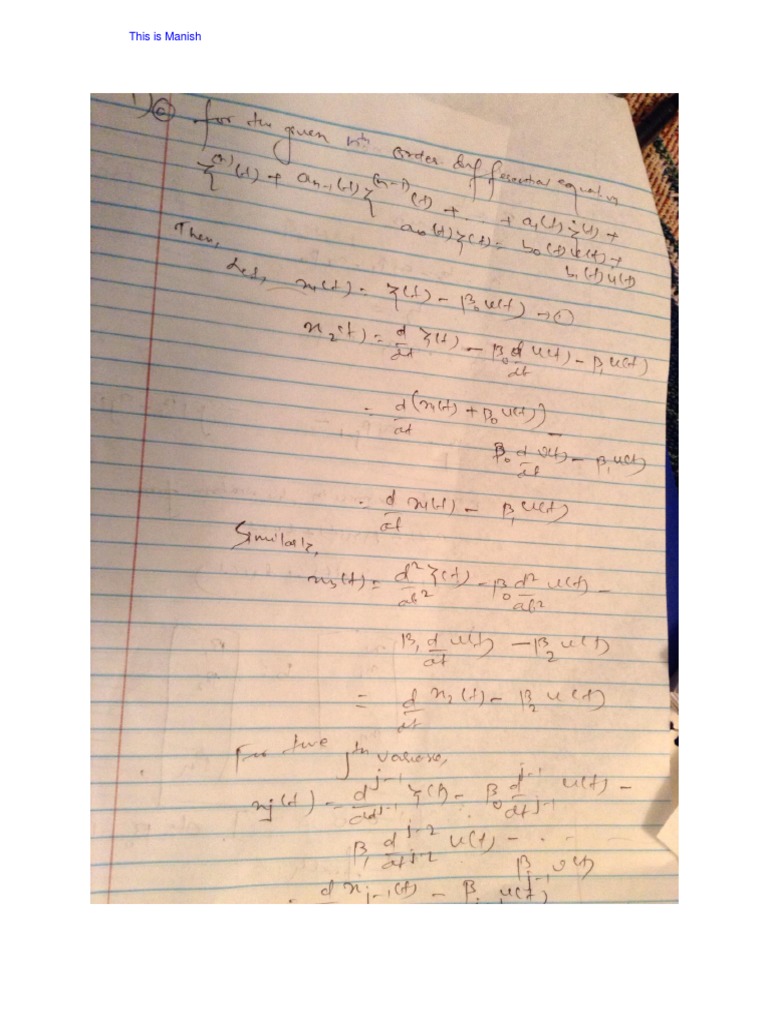 This is Manish
1) a) For the given nth order differential equation
ξ^(n)(t) + a_{n-1}(t) ξ^(n-1)(t) + ... + a_1(t) ξ̇(t) +
a_0(t) ξ(t) = b_0(t) u(t) +
b_1(t) u̇(t)
Then,
Let, x_1(t) = ξ(t) - β_0 u(t) → ①
x_2(t) = d/dt ξ(t) - β_0 d/dt u(t) - β_1 u(t)
= d/dt (x_1(t) + β_0 u(t)) -
β_0 d/dt u(t) - β_1 u(t)
= d/dt x_1(t) - β_1 u(t)
Similarly,
x_3(t) = d²/dt² ξ(t) - β_0 d²/dt² u(t) -
β_1 d/dt u(t) - β_2 u(t)
= d/dt x_2(t) - β_2 u(t)
For the jth
x_j(t) = d^{j-1}/dt^{j-1} ξ(t) - β_0 d^{j-1}/dt^{j-1} u(t) -
β_1 d^{j-2}/dt^{j-2} u(t) - ...
β_{j-1} u(t)
= d x_{j-1}(t) - β u(t)